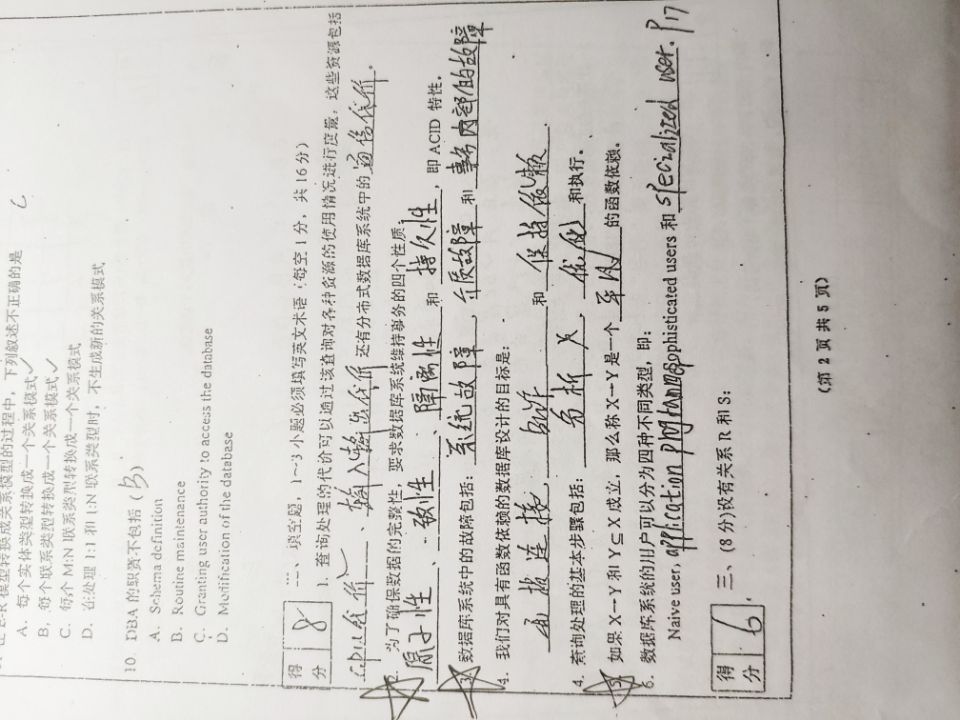 E-R 模型转换成关系模型的过程中，下列叙述不正确的是 C
A．每个实体类型转换成一个关系模式✓
B，每个联系类型转换成一个关系模式✓
C．每个 M:N 联系类型转换成一个关系模式
D．在处理 1:1 和 1:N 联系类型时，不生成新的关系模式
10．DBA 的职责不包括（B）
A．Schema definition
B．Routine maintenance
C．Granting user authority to access the database
D．Modification of the database
得分 8 二、填空题，1～3 小题必须填写英文术语（每空 1 分，共 16 分）
1. 查询处理的代价可以通过该查询对各种资源的使用情况进行度量，这些资源包括
cpu代价、输入输出代价 还有分布式数据库系统中的 通信代价。
2. 为了确保数据的完整性，要求数据库系统维持事务的四个性质：
原子性、一致性、隔离性 和 持久性，即 ACID 特性。
3. 数据库系统中的故障包括：系统故障，介质故障 和 事务内部的故障
4. 我们对具有函数依赖的数据库设计的目标是：
连接，和 保持依赖.
4. 查询处理的基本步骤包括：分析，优化 和执行。
5. 如果 X→Y 和 Y⊆X 成立，那么称 X→Y 是一个 平凡 的函数依赖。
6. 数据库系统的用户可以分为四种不同类型，即：
Naive user, application sophisticated users 和 specialized user. P17
得分 6 三、(8 分)设有关系 R 和 S:
(第 2 页 共 5 页)